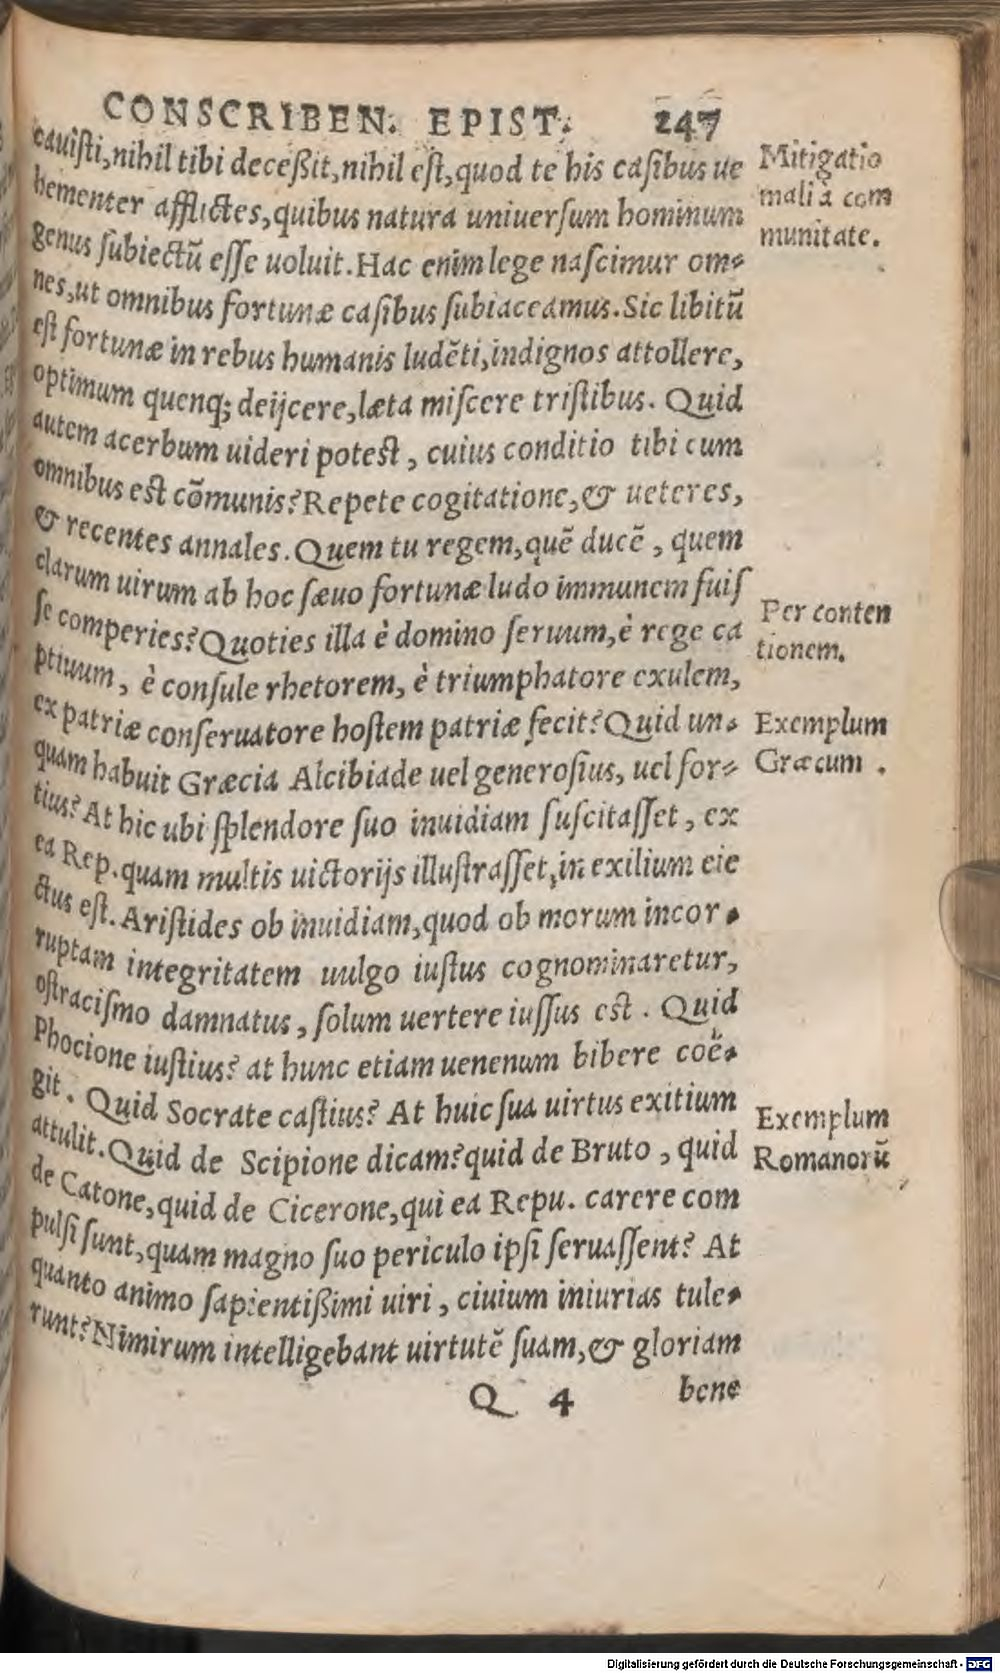 CONSCRIBEN. EPIST. 247
cauiſti,nihil tibi deceßit,nihil eſt,quod te his caſibus ue
hementer afflictes,quibus natura uniuerſum hominum
genus ſubiectũ eſſe uoluit.Hac enim lege naſcimur om-
nes,ut omnibus fortunæ caſibus ſubiaceamus.Sic libitũ
eſt fortunæ in rebus humanis ludẽti,indignos attollere,
optimum quenq; deijcere,læta miſcere triſtibus. Quid
autem acerbum uideri potest , cuius conditio tibi cum
omnibus est cõmunis?Repete cogitatione,& ueteres,
& recentes annales.Quem tu regem,quẽ ducẽ , quem
clarum uirum ab hoc ſæuo fortunæ ludo immunem fuiſ
ſe comperies?Quoties illa è domino ſeruum,è rege ca
ptiuum, è conſule rhetorem, è triumphatore exulem,
ex patriæ conſeruatore hoſtem patriæ fecit?Quid un-
quam habuit Græcia Alcibiade uel generoſius, uel for-
tius? At hic ubi ſplendore ſuo inuidiam ſuſcitaſſet, ex
ea Rep.quam multis uictorijs illuſtraſſet,in exilium eie
ctus eſt. Ariſtides ob inuidiam,quod ob morum incor-
ruptam integritatem uulgo iuſtus cognominaretur,
oſtraciſmo damnatus, ſolum uertere iuſſus est . Quid
Phocione iuſtius? at hunc etiam uenenum bibere coë-
git. Quid Socrate caſtius? At huic ſua uirtus exitium
attulit.Quid de Scipione dicam?quid de Bruto , quid
de Catone,quid de Cicerone,qui ea Repu. carere com
pulſi ſunt,quam magno ſuo periculo ipſi ſeruaſſent? At
quanto animo ſapientißimi uiri , ciuium iniurias tule-
runt?Nimirum intelligebant uirtutẽ ſuam,& gloriam
Q 4 bene
Mitigatio
mali à com
munitate.
Per conten
tionem.
Exemplum
Græcum .
Exemplum
Romanorũ
Digitalisierung gefördert durch die Deutsche Forschungsgemeinschaft - DFG